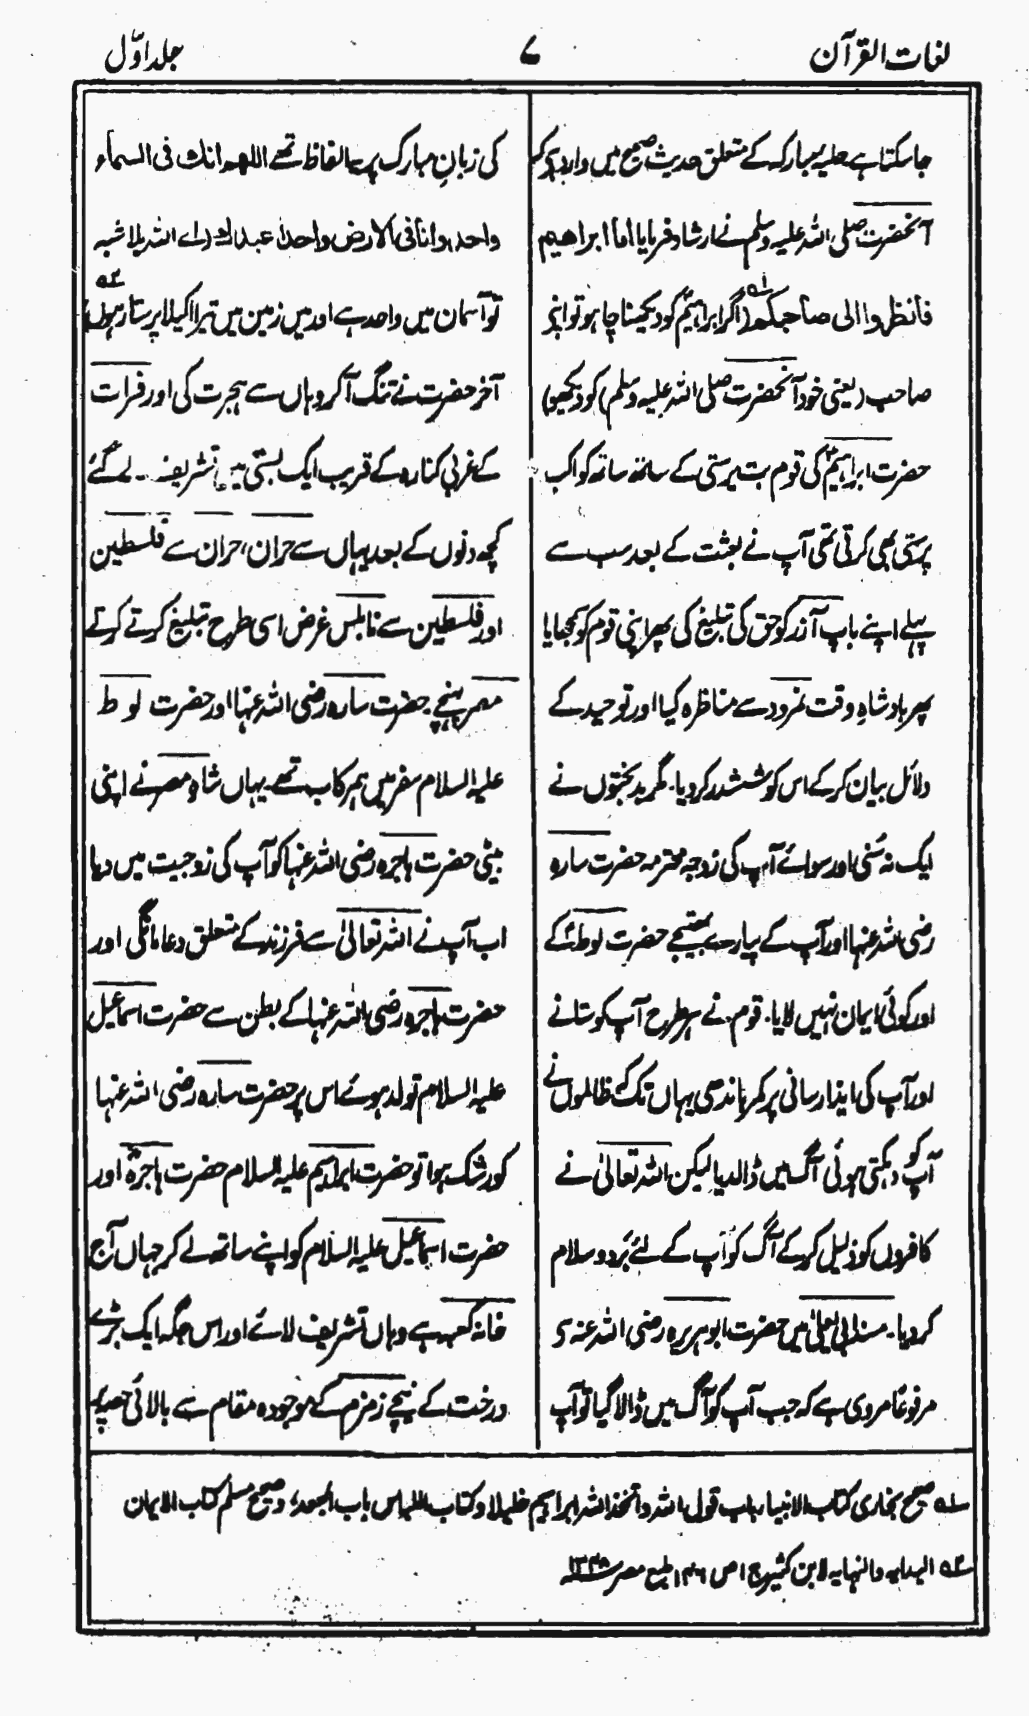 لغات القرآن
۷
جلد اوّل
جا سکتا ہے حلیۂ مبارک کے متعلق حدیث صحیح میں وارد ہے کہ
آنحضرت صلی اللہ علیہ وسلم نے ارشاد فرمایا اما ابراھیم
فانظروا الی صاحبکم (اگر ابراہیمؑ کو دیکھنا چاہو تو اپنے
صاحب (یعنی خود آنحضرت صلی اللہ علیہ وسلم) کو دیکھو)
حضرت ابراہیمؑ کی قوم بت پرستی کے ساتھ ساتھ کواکب
پرستی بھی کرتی تھی آپ نے بعثت کے بعد سب سے
پہلے اپنے باپ آزر کو حق کی تبلیغ کی پھر اپنی قوم کو سمجھایا
پھر بادشاہِ وقت نمرود سے مناظرہ کیا اور توحید کے
دلائل بیان کر کے اس کو ششدر کر دیا۔ مگر بدبختوں نے
ایک نہ سُنی اور سوائے آپ کی زوجہ محترمہ حضرت سارہ
رضی اللہ عنہا اور آپ کے پیارے بھتیجے حضرت لوطؑ کے
اور کوئی ایمان نہیں لایا۔ قوم نے ہر طرح آپ کو ستانے
اور آپ کی ایذا رسانی پر کمر باندھی یہاں تک کہ ظالموں نے
آپ کو دہکتی ہوئی آگ میں ڈالدیا لیکن اللہ تعالیٰ نے
کافروں کو ذلیل کر کے آگ کو آپ کے لئے بَرد و سلام
کر دیا۔ مسند ابی یعلیٰ میں حضرت ابوہریرہ رضی اللہ عنہ سے
مرفوعًا مروی ہے کہ جب آپ کو آگ میں ڈالا گیا تو آپ
کی زبانِ مبارک پر یہ الفاظ تھے اللھم انک فی السماء
واحد وانا فی الارض واحد اعبدک (اے اللہ بلا شبہ
تو آسمان میں واحد ہے اور میں زمین میں تیرا اکیلا پرستار ہوں) ۲ہ
آخر حضرت نے تنگ آ کر وہاں سے ہجرت کی اور فرات
کے غربی کنارہ کے قریب ایک بستی میں تشریف لے گئے
کچھ دنوں کے بعد یہاں سے حران، حران سے فلسطین
اور فلسطین سے نابلس غرض اسی طرح تبلیغ کرتے کرتے
مصر پہنچے۔ حضرت سارہ رضی اللہ عنہا اور حضرت لوط
علیہ السلام سفر میں ہمرکاب تھے۔ یہاں شاہِ مصر نے اپنی
بیٹی حضرت ہاجرہ رضی اللہ عنہا کو آپ کی زوجیت میں دیا
اب آپ نے اللہ تعالیٰ سے فرزند کے متعلق دعا مانگی اور
حضرت ہاجرہ رضی اللہ عنہا کے بطن سے حضرت اسماعیل
علیہ السلام تولد ہوئے اس پر حضرت سارہ رضی اللہ عنہا
کو رشک ہوا تو حضرت ابراہیم علیہ السلام حضرت ہاجرہؓ اور
حضرت اسماعیل علیہ السلام کو اپنے ساتھ لے کر جہاں آج
خانہ کعبہ ہے وہاں تشریف لائے اور اس جگہ ایک بڑے
درخت کے نیچے زمزم کے موجودہ مقام سے بالائی حصہ پر
۱ہ صحیح بخاری کتاب الانبیاء باب قول اللہ واتخذ اللہ ابراہیم خلیلا وکتاب اللباس باب الجعد، وصحیح مسلم کتاب الایمان
۲ہ البدایہ والنہایہ لابن کثیر ج ۱ ص ۱۴۶ طبع مصر ۱۳۴۸ھ